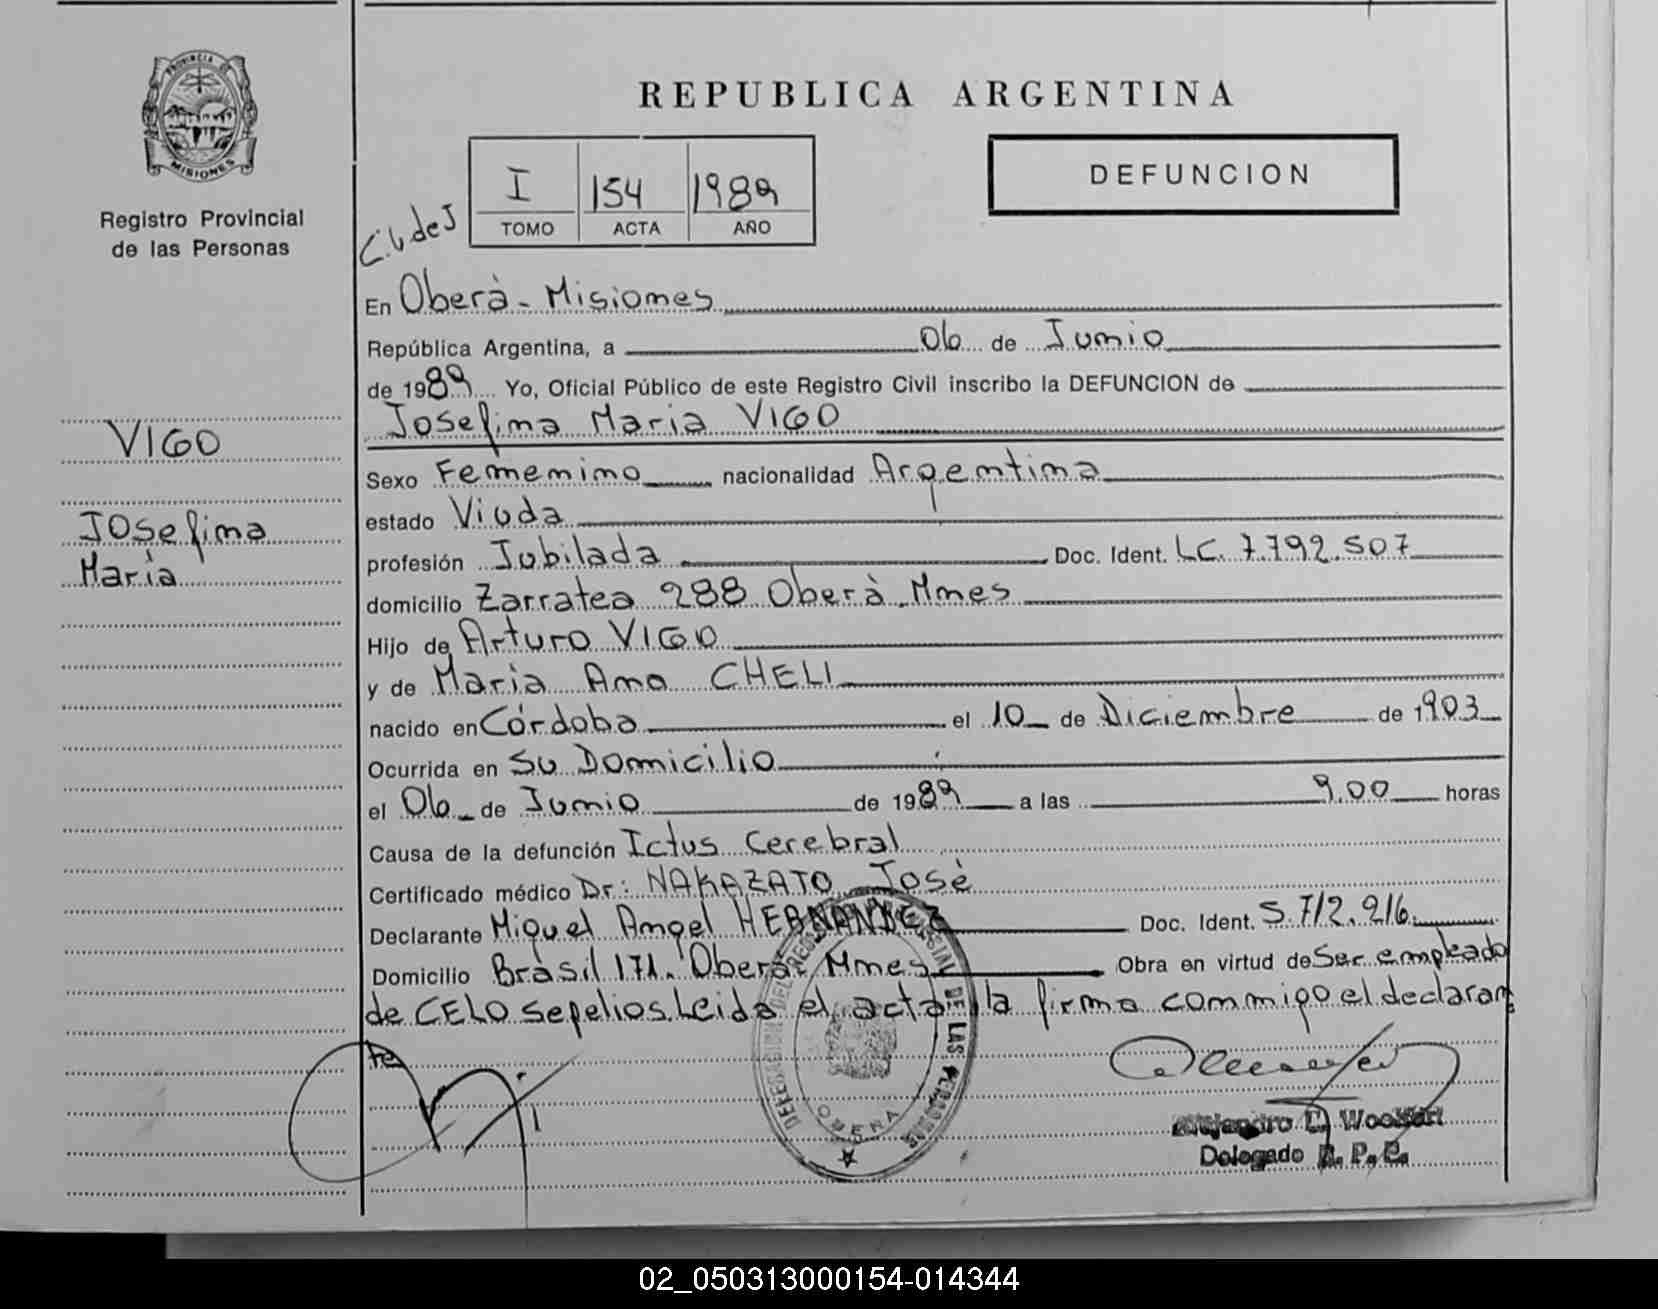 PROVINCIA DE
MISIONES
Registro Provincial
de las Personas
VIGO
Josefina
Maria
REPUBLICA ARGENTINA
I 154 1989
TOMO ACTA AÑO
DEFUNCION
En Oberà - Misiones
República Argentina, a 06 de Junio
de 1989 Yo, Oficial Público de este Registro Civil inscribo la DEFUNCION de
Josefina Maria VIGO
Sexo Femenino nacionalidad Argentina
estado Viuda
profesión Jubilada Doc. Ident. LC. 7.792.507
domicilio Zarratea 288 Oberà Mnes
Hijo de Arturo VIGO
y de Maria Ana CHELI
nacido en Córdoba el 10 de Diciembre de 1903
Ocurrida en Su Domicilio
el 06 de Junio de 1989 a las 9.00 horas
Causa de la defunción Ictus Cerebral
Certificado médico Dr: NAKAZATO Josè
Declarante Miguel Angel HERNANDEZ Doc. Ident. 5.712.916
Domicilio Brasil 171. Oberà Mnes Obra en virtud de Ser empleado
de CELO sepelios. Leida el acta la firma conmigo el declaran
te
DELEGACION DEL REGISTRO PROVINCIAL DE LAS PERSONAS
OBERA
Alejandro
Delegado R. P. P.
02_050313000154-014344